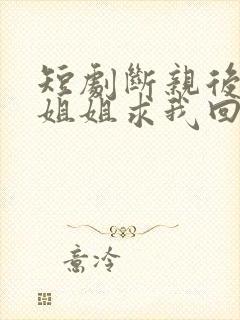 短劇斷親後
姐姐求我回
意冷